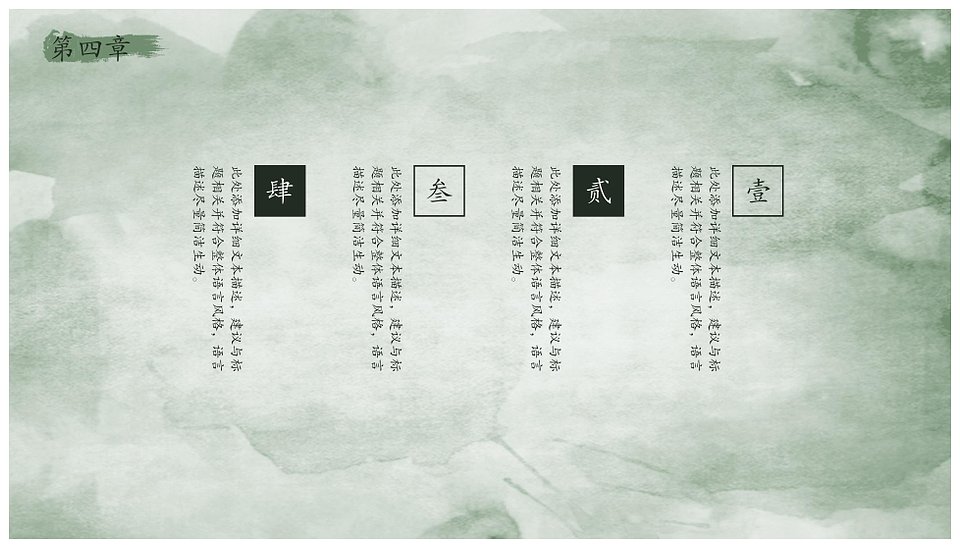 第四章
壹
此处添加详细文本描述，建议与标
题相关并符合整体语言风格，语言
描述尽量简洁生动。
贰
此处添加详细文本描述，建议与标
题相关并符合整体语言风格，语言
描述尽量简洁生动。
叁
此处添加详细文本描述，建议与标
题相关并符合整体语言风格，语言
描述尽量简洁生动。
肆
此处添加详细文本描述，建议与标
题相关并符合整体语言风格，语言
描述尽量简洁生动。